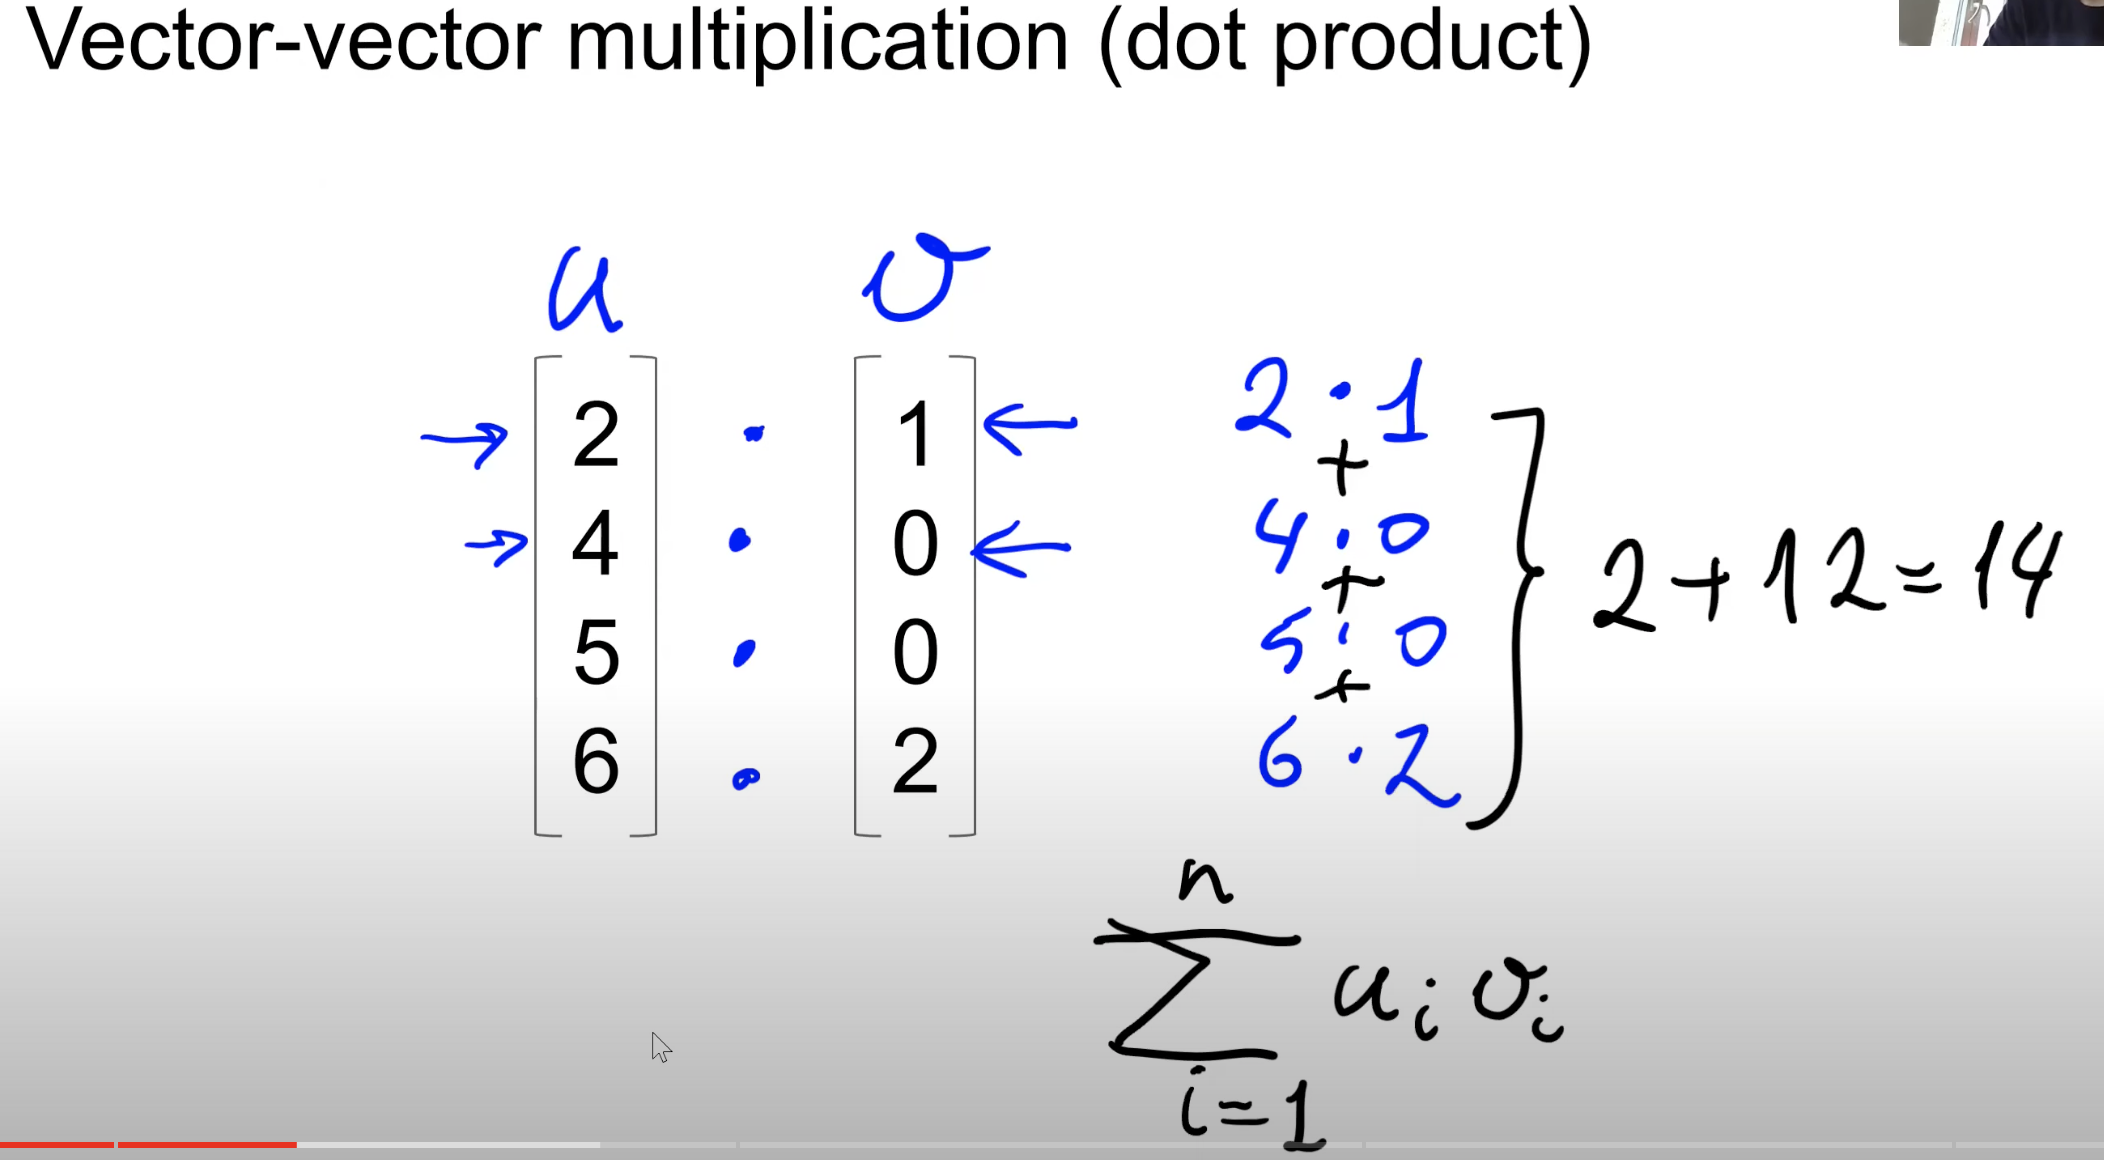 Vector-vector multiplication (dot product)
u v
2 · 1
4 · 0
5 · 0
6 · 2
2 · 1
+
4 · 0
+
5 · 0
+
6 · 2
2 + 12 = 14
n
∑ u_i v_i
i=1